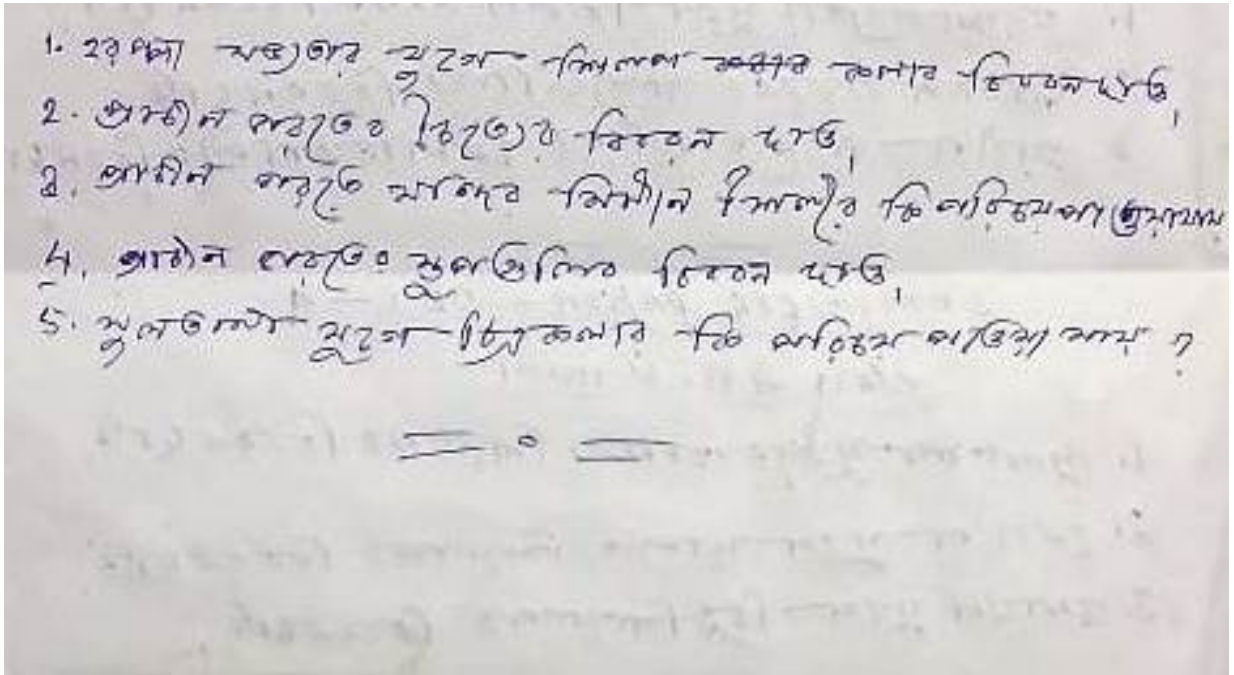 1. হরপ্পা সভ্যতার যুগে শিল্প কলার বিবরন দাও,
2. প্রাচীন ভারতের চৈত্যের বিবরন দাও,
3. প্রাচীন ভারতে মন্দির নির্মান শৈলীর কি পরিচয় পাওয়া যায়
4. প্রাচীন ভারতের স্তুপগুলির বিবরন দাও,
5. সুলতানী যুগে চিত্রকলার কি পরিচয় পাওয়া যায় ?